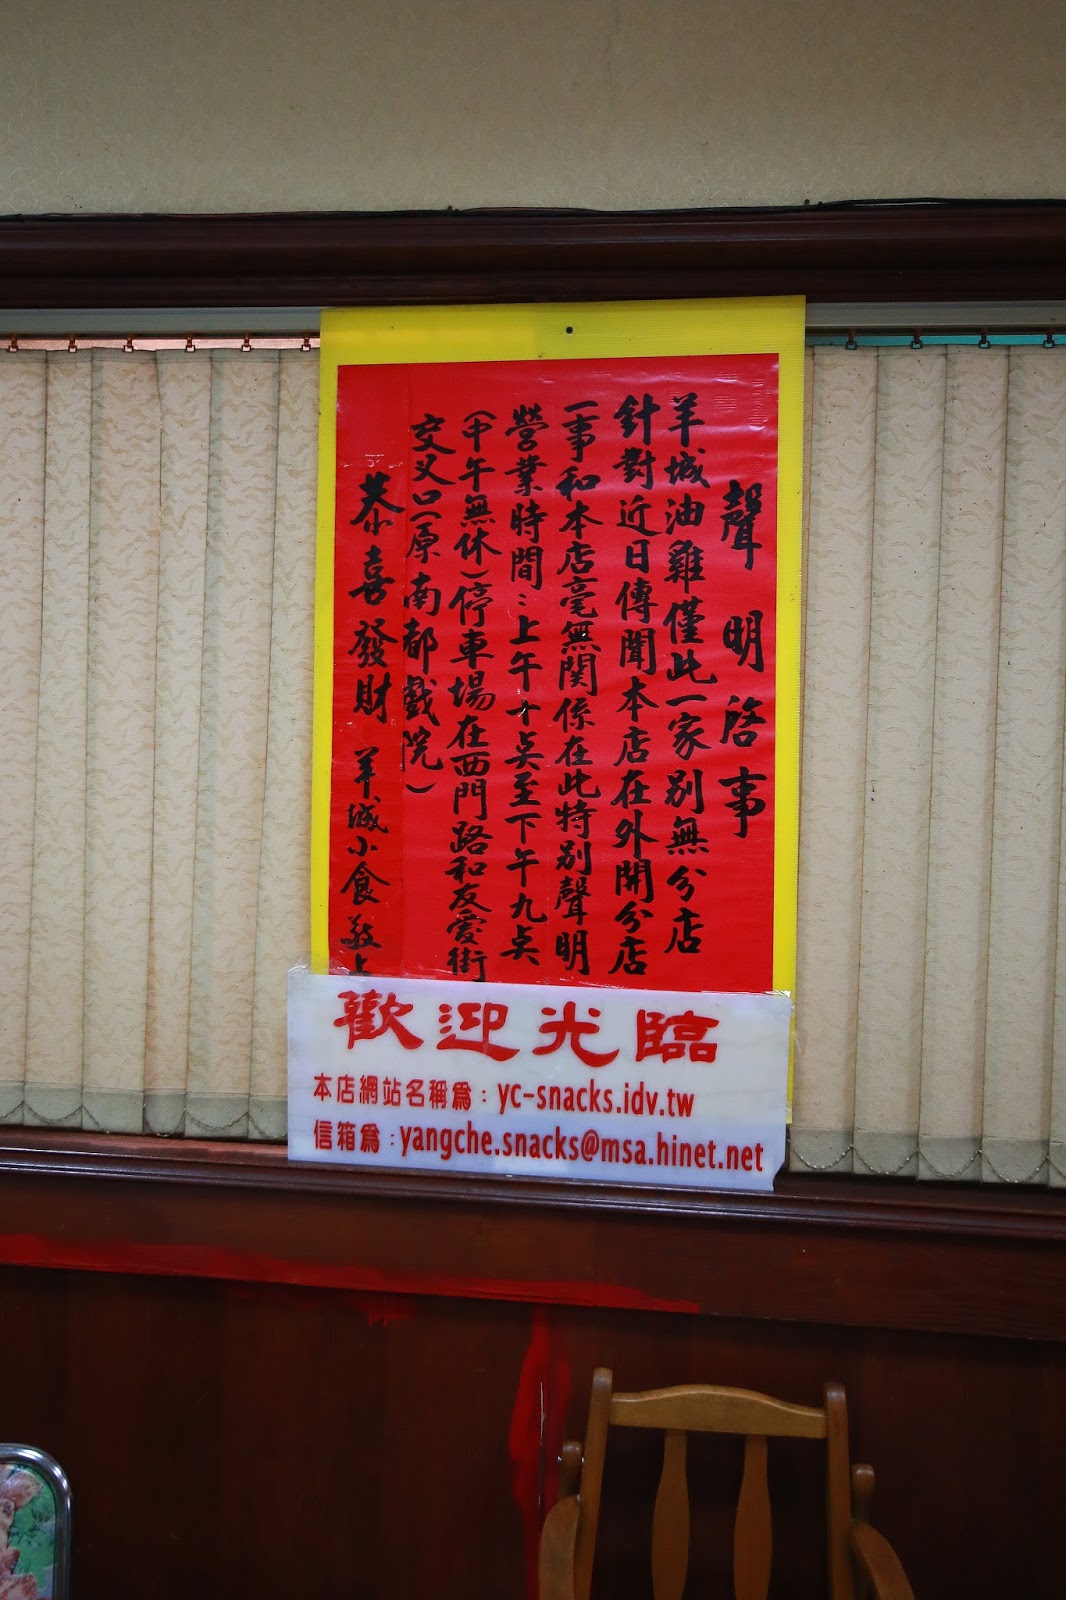 聲明啓事
羊城油雞僅此一家別無分店
針對近日傳聞本店在外開分店
一事和本店毫無関係在此特別聲明
營業時間：上午十点至下午九点
（中午無休）停車場在西門路和友愛街
交叉口（原南都戲院）
恭喜發財 羊城小食敬上
歡迎光臨
本店網站名稱為：yc-snacks.idv.tw
信箱為：yangche.snacks@msa.hinet.net